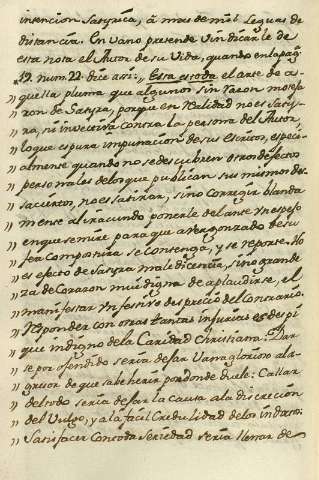 intencion Satyrica, á mas de mil Leguas de
distancia. En vano pretende vindicarle de
esta nota el Autor de su Vida, quando en la pag.
19. num. 22. dice assi: „ Esta es toda el arte de a-
„ quella pluma que algunos sin razon mote-
„ ron de Satyra, porque en realidad no es Saty-
„ ra, ni invectiva contra la persona del Autor,
„ lo que es pura impugnacion de sus Escritos, especi-
„ almente quando no se descubren otros defectos
„ personales de los que publican sus mismos des-
„ aciertos, no es satirizar, sino corregir blanda
„ mente al iracundo ponerle delante un espejo
„ en que se mire para que avergonzado de su
„ fea compostura se contenga, y se reporte. No
„ es efecto de Satyra maledicencia, sino grande
„ za de Corazon mui digna de aplaudirse, el
„ manifestar un festivo desprecio del Contrario.
„ responder con otras tantas injurias es des pi
„ que indigno de la Caridad Christiana: Dar
„ se por ofendido seria dexar Vanaglorioso al a-
„ gresor de que sabe herir por donde duele: Callar
„ del todo seria dexar la causa a la discrecion
„ del Vulgo, y a la facil credulidad de los indoctos:
„ Satisfacer con toda seriedad seria llenar de